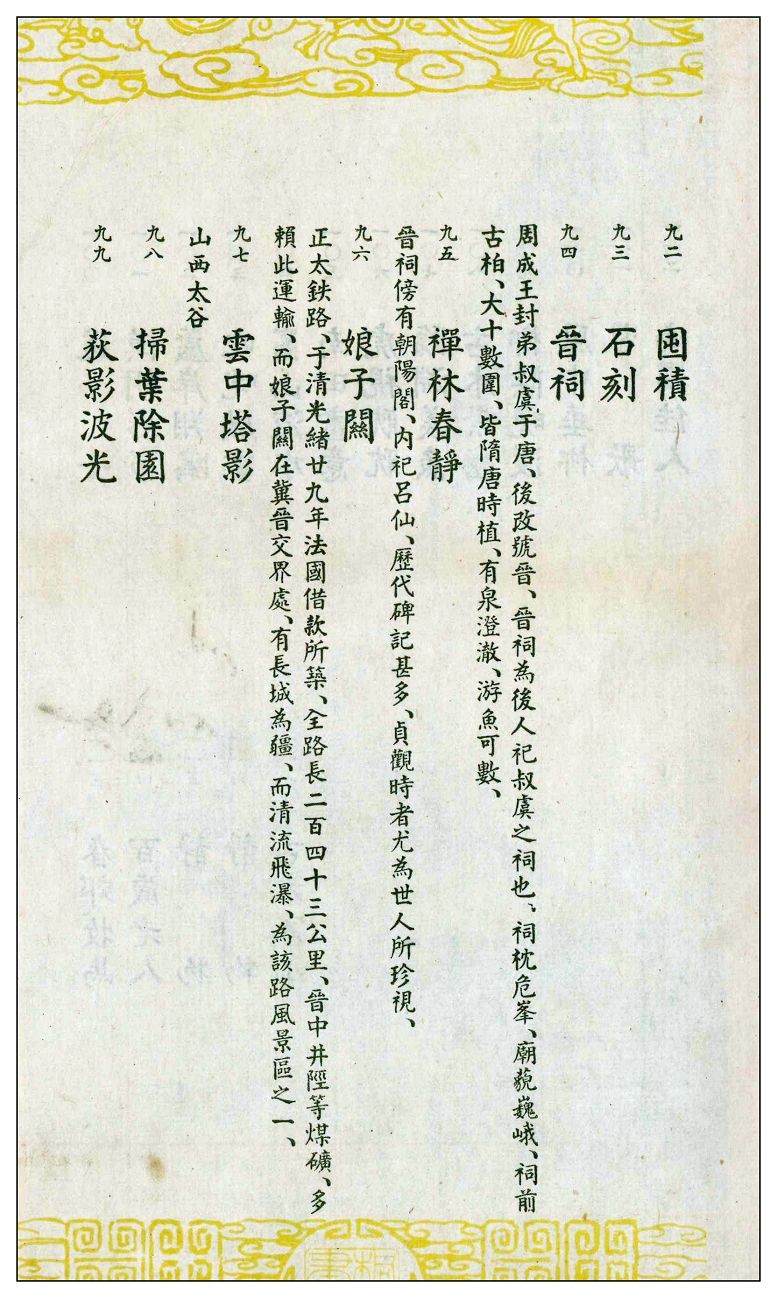 九二 囷積
九三 石刻
九四 晉祠
周成王封弟叔虞于唐、後改號晉、晉祠為後人祀叔虞之祠也、祠枕危峯、廟藐巍峨、祠前
古柏、大十數圍、皆隋唐時植、有泉澄澈、游魚可數、
九五 禪林春靜
晉祠傍有朝陽閣、內祀呂仙、歷代碑記甚多、貞觀時者尤為世人所珍視、
九六 娘子關
正太鉄路、于清光緒廿九年法國借款所築、全路長二百四十三公里、晉中井陘等煤礦、多
賴此運輸、而娘子關在冀晉交界處、有長城為疆、而清流飛瀑、為該路風景區之一、
九七 雲中塔影
山西太谷
九八 掃葉除園
九九 荻影波光